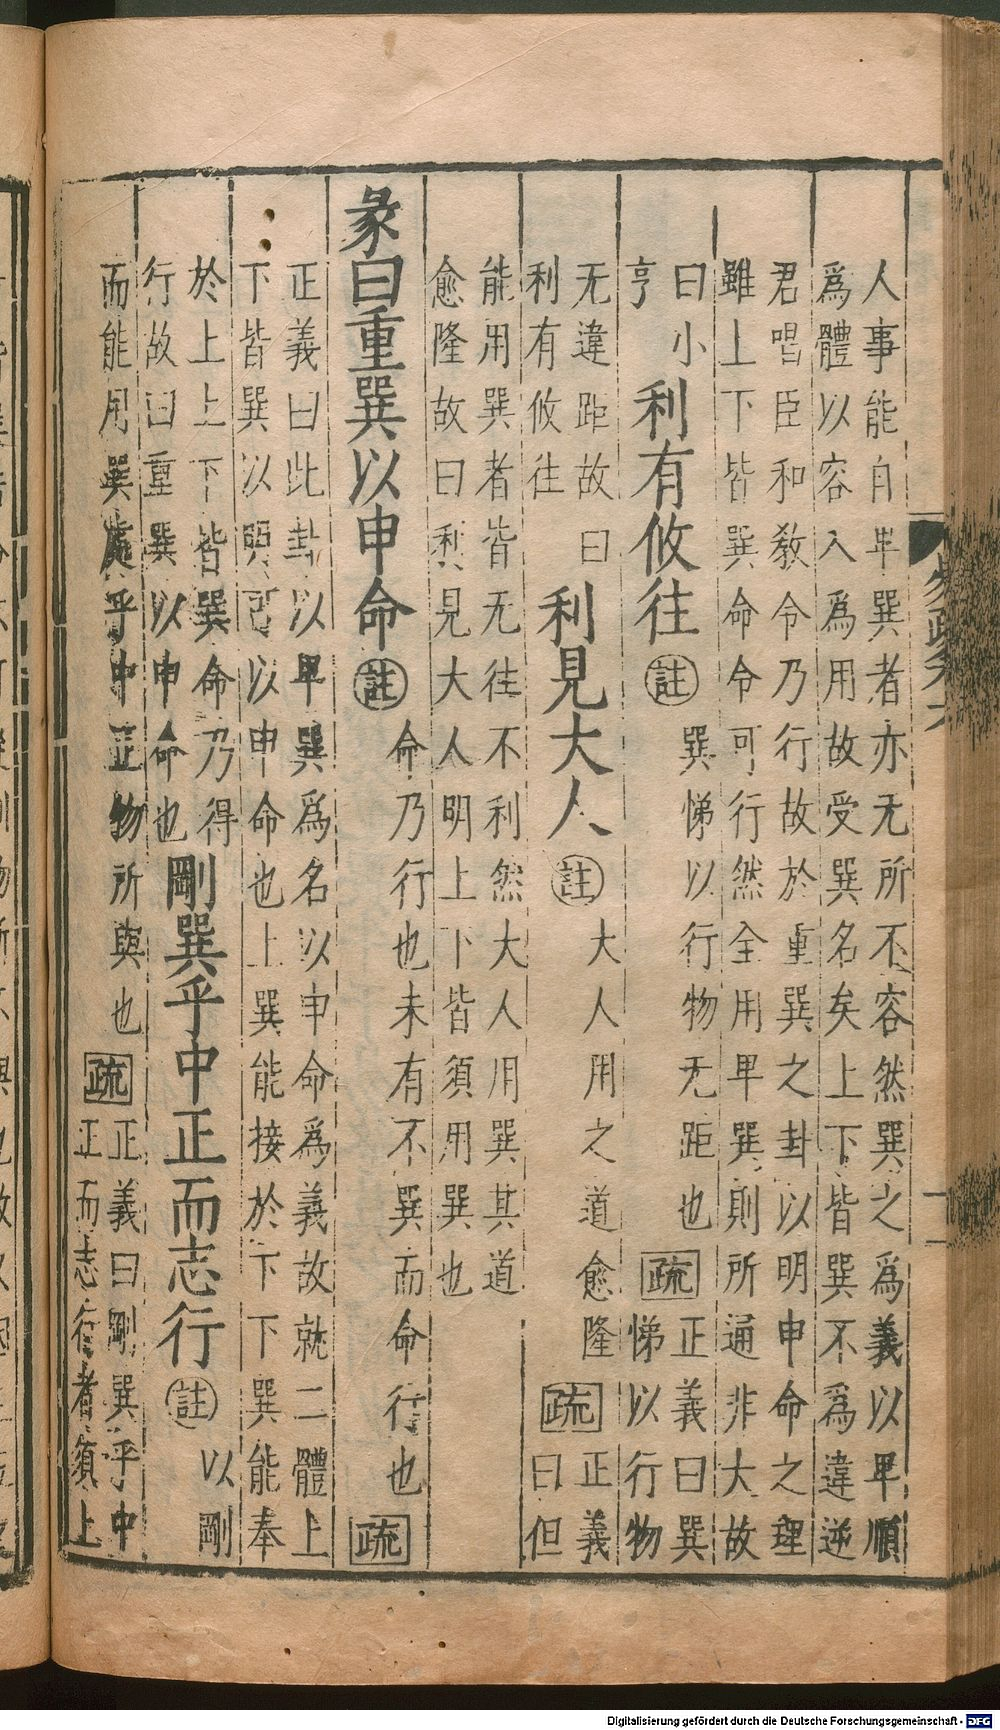 人事能自卑巽者亦无所不容然巽之爲義以卑順
爲體以容入爲用故受巽名矣上下皆巽不爲違逆
君唱臣和敎令乃行故於重巽之卦以明申命之理
雖上下皆巽命令可行然全用卑巽則所通非大故
曰小
亨
利有攸往
註
巽悌以行物无距也
疏
正義曰巽
悌以行物
无違距故曰
利有攸往
利見大人
註
大人用之道愈隆
疏
正義
曰但
能用巽者皆无往不利然大人用巽其道
愈隆故曰利見大人明上下皆須用巽也
彖曰重巽以申命
註
命乃行也未有不巽而命行也
疏
正義曰此卦以卑巽爲名以申命爲義故就二體上
下皆巽以明可以申命也上巽能接於下下巽能奉
於上上下皆巽命乃得
行故曰重巽以申命也
剛巽乎中正而志行
註
以剛
而能用巽處乎中正物所與也
疏
正義曰剛巽乎中
正而志行者須上
易疏卷六
Digitalisierung gefördert durch die Deutsche Forschungsgemeinschaft - DFG